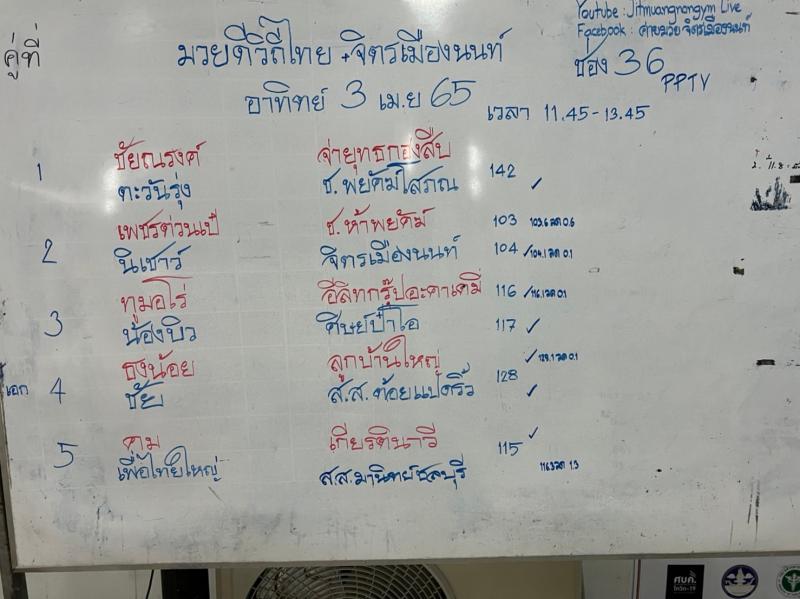 Youtube : Jitmuangnongym Live
Facebook : ค่ายมวยจิตรเมืองนนท์
ช่อง 36
PPTV
คู่ที่
มวยดีวิถีไทย + จิตรเมืองนนท์
อาทิตย์ 3 เม.ย 65
เวลา 11.45 - 13.45
1 ชัยณรงค์ จ่ายุทธกองสืบ
ตะวันรุ่ง ช.พยัคฆ์โสภณ 142 ✓
2 เพชรต่วนเป๋ ช.ห้าพยัคฆ์ 103 103.6 ลด 0.6
นิเชาว์ จิตรเมืองนนท์ 104 ✓ 104.1 ลด 0.1
3 ทูมอโร่ อีลิทกรุ๊ปอะคาเดมี่ 116 ✓ 116.1 ลด 0.1
น้องบิว ศิษย์ป๋าโอ 117 ✓
เอก 4 ธงน้อย ลูกบ้านใหญ่ 128 ✓ 128.1 ลด 0.1
ชัย ส.ส.ต้อยแปดริ้ว ✓
5 คม เกียรตินาวี 115 ✓
เพื่อไทยใหญ่ ส.ส.มานิตย์ชลบุรี 116.3 ลด 1.3
ศบค.
โควิด-19